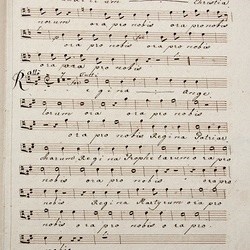 Christia
norum ora pro nobis ora pro nobis
ora pro nobis ora pro nobis
ora pro nobis
egina Ange
lorum ora pro nobis ora pro
nobis ora pro nobis Regina Patriar
charum Regina Prophetarum ora pro
nobis ora pro nobis ora pro
nobis Regina Martyrum ora pro
nobis ora pro nobis o ra pro
nobis